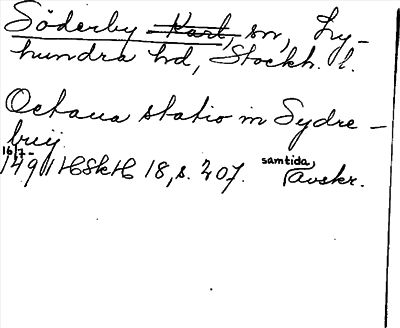 Söderby Karl, sn, Ly-
hundra hd, Stockh. l.
Octaua statio in Sydre-
bwij
16/7-
1491 HSkH 18, s. 207. samtida, avskr.